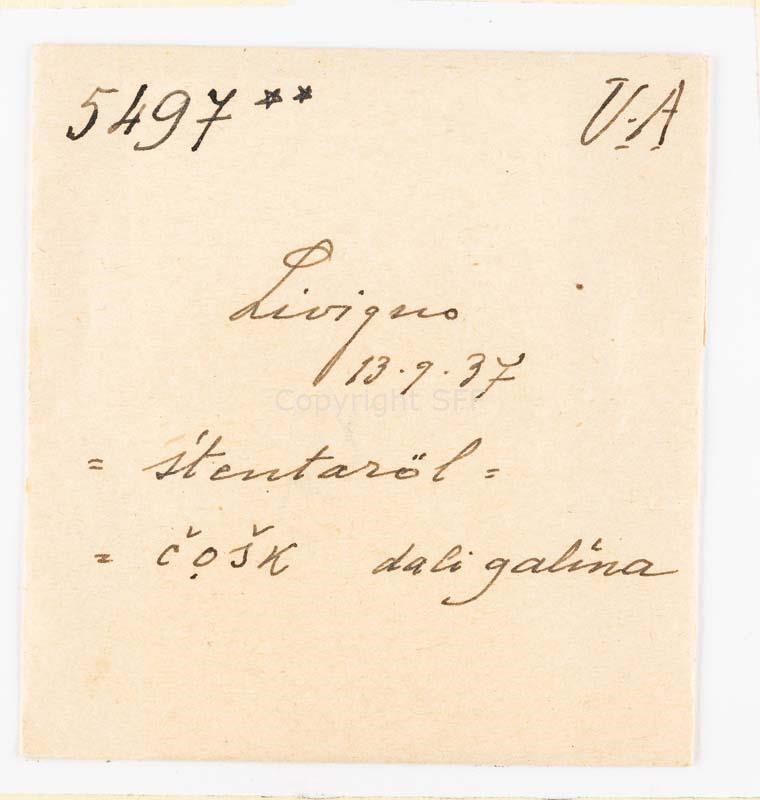 5497** U.A
Livigno
13.9.37
Copyright SFF
= štentaröl =
= čọšk dali galína